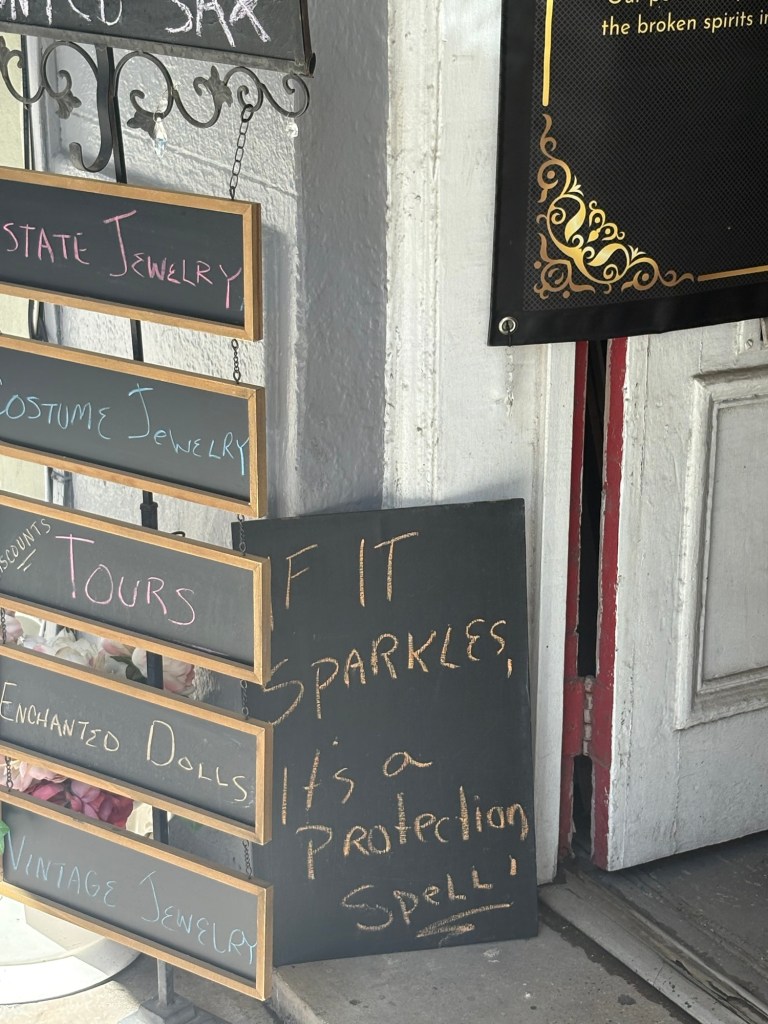 STATE JEWELRY
COSTUME JEWELRY
TOURS
ENCHANTED DOLLS
VINTAGE JEWELRY
F IT
SPARKLES,
It's a
Protection
Spell!
the broken spirits